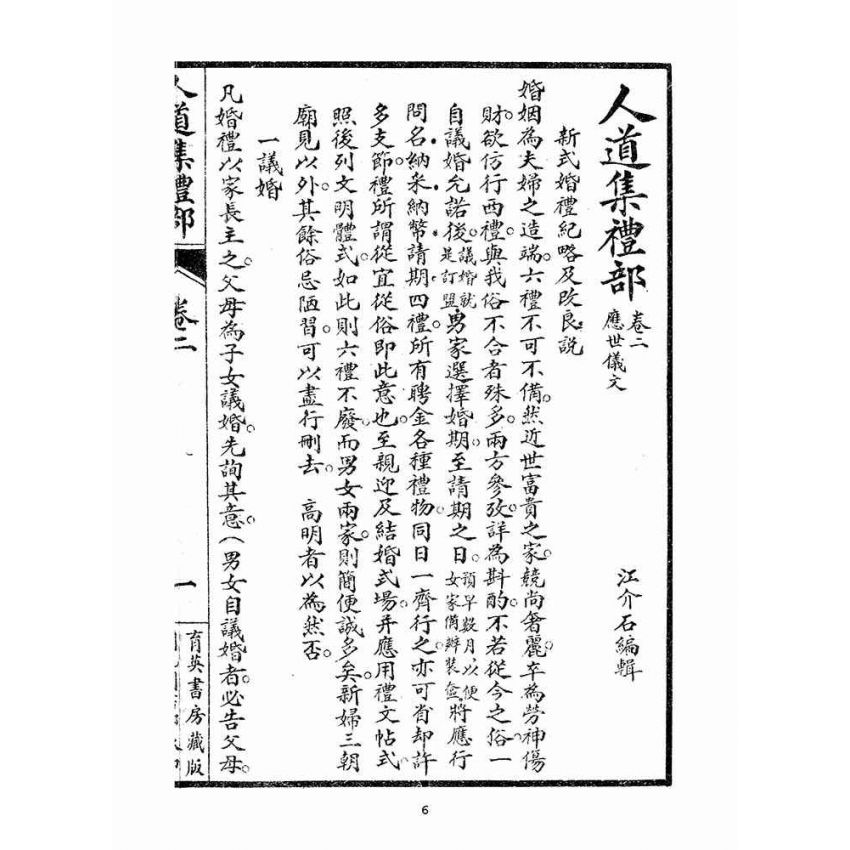 人道集禮部 卷二 應世儀文
江介石編輯
新式婚禮紀略及改良說
婚姻為夫婦之造端。六禮不可不備。然近世富貴之家。競尚奢麗。卒為勞神傷
財。欲仿行西禮。與我俗不合者殊多。兩方參攷。詳為斟酌。不若從今之俗。一
自議婚允諾後。議婚就是訂盟男家選擇婚期。至請期之日。預早數月以便女家備辦裝奩將應行
問名。納采。納幣。請期。四禮。所有聘金各種禮物。同日一齊行之。亦可省却許
多支節。禮所謂從宜從俗。即此意也。至親迎及結婚式場。并應用禮文帖式。
照後列文明體式。如此則六禮不廢。而男女兩家。則簡便誠多矣。新婦三朝
廟見以外。其餘俗忌陋習。可以盡行刪去。 高明者以為然否。
一議婚
凡婚禮以家長主之。父母為子女議婚。先詢其意。(男女自議婚者。必告父母。
人道集禮部 卷二 一
育英書房藏版
6